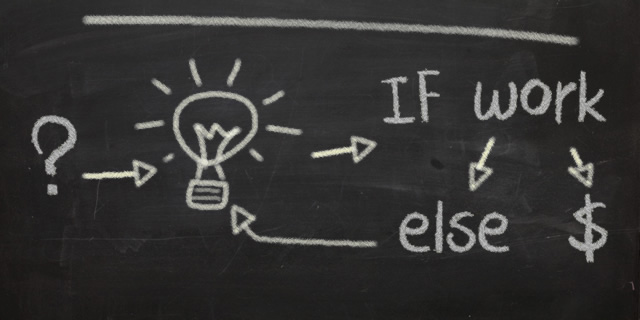 ?
IF work
else $